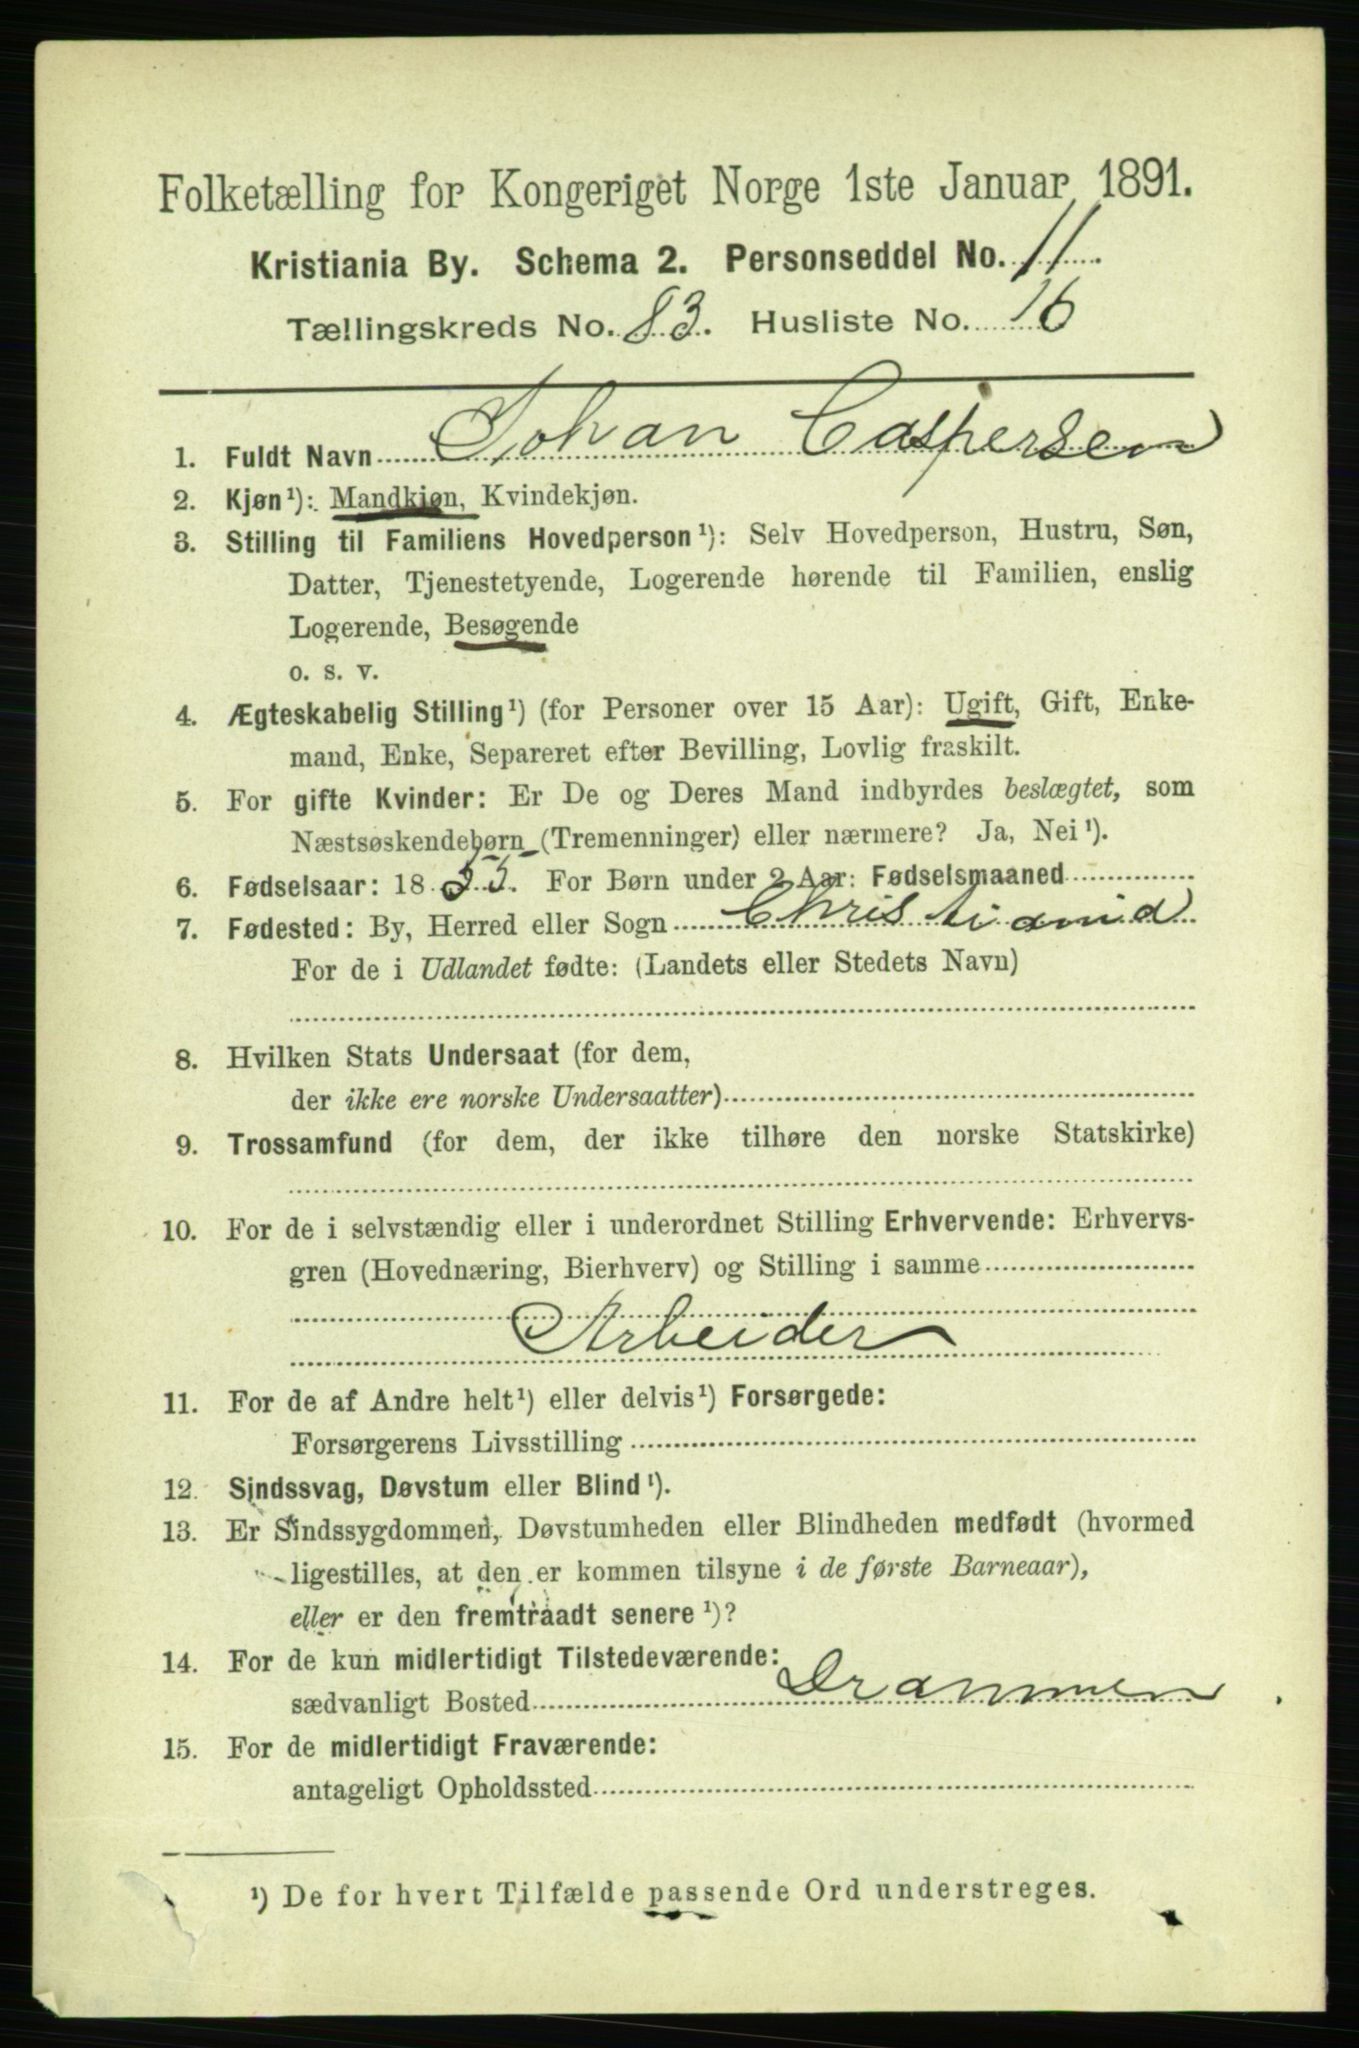 Folketælling for Kongeriget Norge 1ste Januar 1891.
Kristiania By. Schema 2. Personseddel No. 11
Tællingskreds No. 83. Husliste No. 16
1. Fuldt Navn Johan Caspersen
2. Kjøn¹): Mandkjøn, Kvindekjøn.
3. Stilling til Familiens Hovedperson¹): Selv Hovedperson, Hustru, Søn,
Datter, Tjenestetyende, Logerende hørende til Familien, enslig
Logerende, Besøgende
o. s. v.
4. Ægteskabelig Stilling¹) (for Personer over 15 Aar): Ugift, Gift, Enke-
mand, Enke, Separeret efter Bevilling, Lovlig fraskilt.
5. For gifte Kvinder: Er De og Deres Mand indbyrdes beslægtet, som
Næstsøskendebørn (Tremenninger) eller nærmere? Ja, Nei¹).
6. Fødselsaar: 1855. For Børn under 2 Aar: Fødselsmaaned
7. Fødested: By, Herred eller Sogn Christiania
For de i Udlandet fødte: (Landets eller Stedets Navn)
8. Hvilken Stats Undersaat (for dem,
der ikke ere norske Undersaatter)
9. Trossamfund (for dem, der ikke tilhøre den norske Statskirke)
10. For de i selvstændig eller i underordnet Stilling Erhvervende: Erhvervs-
gren (Hovednæring, Bierhverv) og Stilling i samme
Arbeider
11. For de af Andre helt¹) eller delvis¹) Forsørgede:
Forsørgerens Livsstilling
12. Sindssvag, Døvstum eller Blind¹).
13. Er Sindssygdommen, Døvstumheden eller Blindheden medfødt (hvormed
ligestilles, at den er kommen tilsyne i de første Barneaar),
eller er den fremtraadt senere¹)?
14. For de kun midlertidigt Tilstedeværende:
sædvanligt Bosted Drammen
15. For de midlertidigt Fraværende:
antageligt Opholdssted
¹) De for hvert Tilfælde passende Ord understreges.